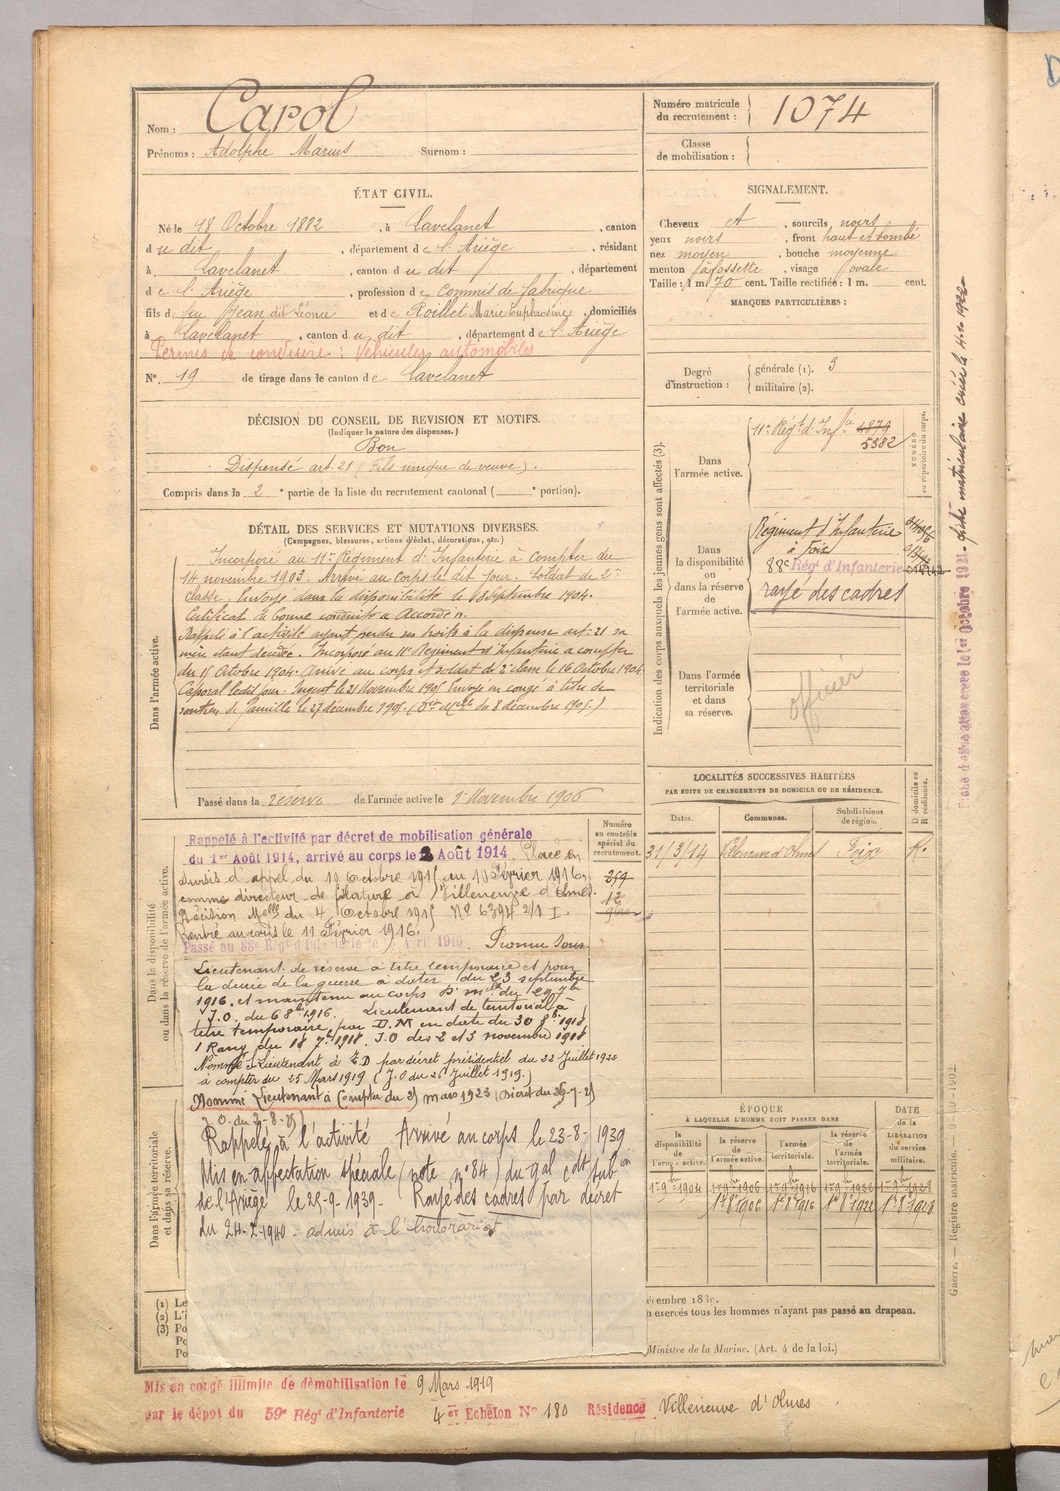 Nom : Carol
Prénoms : Adolphe Marius Surnom :
Numéro matricule du recrutement : 1074
Classe de mobilisation :
ÉTAT CIVIL.
Né le 18 Octobre 1882, à Lavelanet, canton
du dit, département de l'Ariège, résidant
à Lavelanet, canton du dit, département
de l'Ariège, profession de Commis de fabrique
fils de feu Jean dit Léonce et de Roillet Marie Euphrosine, domiciliés
à Lavelanet, canton du dit, département de l'Ariège
Permis de conduire : Véhicules automobiles
N° 19 de tirage dans le canton de Lavelanet
SIGNALEMENT.
Cheveux et, sourcils noirs
yeux noirs, front haut et bombé
nez moyen, bouche moyenne
menton à fossette, visage ovale
Taille : 1 m 70 cent. Taille rectifiée : 1 m. cent.
MARQUES PARTICULIÈRES :
Degré d'instruction : générale (1). 3
militaire (2).
DÉCISION DU CONSEIL DE REVISION ET MOTIFS.
(Indiquer la nature des dispenses.)
Bon
Dispensé art. 21 (fils unique de veuve).
Compris dans la 2e partie de la liste du recrutement cantonal ( e portion).
DÉTAIL DES SERVICES ET MUTATIONS DIVERSES.
(Campagnes, blessures, actions d'éclat, décorations, etc.)
Dans l'armée active.
Incorporé au 11e Régiment d'Infanterie à compter du
14 novembre 1903. Arrivé au corps le dit jour. Soldat de 2e
classe. Envoyé dans la disponibilité le 18 Septembre 1904.
Certificat de bonne conduite "Accordé".
Rappelé à l'activité ayant perdu ses droits à la dispense art. 21 sa
mère étant décédée. Incorporé au 11e Régiment d'Infanterie à compter
du 15 Octobre 1904. Arrivé au corps et soldat de 2e classe le 16 Octobre 1904
Caporal le dit jour. Sergent le 21 Novembre 1905 Envoyé en congé à titre de
soutien de famille le 27 décembre 1905. (Don Mlle du 8 décembre 1905.)
Passé dans la réserve de l'armée active le 1er Novembre 1906
Dans la disponibilité ou dans la réserve de l'armée active.
Rappelé à l'activité par décret de mobilisation générale
du 1er Août 1914, arrivé au corps le 2 Août 1914. Placé en
sursis d'appel du 11 Octobre 1915 au 11 Février 1916,
comme directeur de filature à Villeneuve d'Olmes.
Décision Mlle du 4 Octobre 1915 N° 6394 2/1 I.
Rentré au corps le 11 Février 1916.
Passé au 88e Régt d'Infanterie le Avril 1916. Promu Sous-
Lieutenant de réserve à titre temporaire et pour
la durée de la guerre à dater du 23 septembre
1916 et maintenu au corps D. mlle du 29 7bre
J.O. du 6 8bre 1916. Lieutenant de territorial à
titre temporaire par D.M en date du 30 8bre 1918,
1 Rang du 18 7bre 1918. J.O des 2 et 3 novembre 1918
Nommé S-Lieutenant à T.D par décret présidentiel du 22 Juillet 1920
à compter du 25 Mars 1919 (J.O du 26 Juillet 1919.)
Nommé Lieutenant à Compter du 25 mars 1923 (Décret du 25-7-25)
J.O. du 2-8-25)
Dans l'armée territoriale et dans sa réserve.
Rappelé à l'activité Arrivé au corps le 23-8-1939
Mis en affectation Spéciale (note n° 84) du gal cdt subon
de l'Ariège le 25-9-1939. Rayé des cadres par décret
du 24-2-1940. admis à l'honorariat
Numéro au contrôle spécial du recrutement.
259
12
Indication des corps auxquels les jeunes gens sont affectés (3).
Dans l'armée active.
11e Régt d'Infie 4879
5382
NUMÉRO au répertoire du corps.
Dans la disponibilité ou dans la réserve de l'armée active.
Régiment d'Infanterie
à Foix
88e Régt d'Infanterie
rayé des cadres
Dans l'armée territoriale et dans sa réserve.
officier
LOCALITÉS SUCCESSIVES HABITÉES
PAR SUITE DE CHANGEMENTS DE DOMICILE OU DE RÉSIDENCE.
Dates. Communes. Subdivisions de région. D domicile ou R résidence.
31/3/14 Villeneuve d'Olmes Foix R.
ÉPOQUE
À LAQUELLE L'HOMME DOIT PASSER DANS
DATE de la LIBÉRATION du service militaire.
la disponibilité de l'armée active. la réserve de l'armée active. l'armée territoriale. la réserve de l'armée territoriale.
1er 9bre 1904 1er 9bre 1906 1er 9bre 1916 1er 9bre 1922 1er 9bre 1928
1er 8bre 1906 1er 8bre 1916 1er 8bre 1922 1er 8bre 1928
(1) Le
(2) L'i
(3) Po
Po
Po
écembre 1889.
n exercés tous les hommes n'ayant pas passé au drapeau.
Ministre de la Marine. (Art. 4 de la loi.)
Mis en congé illimité de démobilisation le 9 Mars 1919
par le dépôt du 59e Régt d'Infanterie 4er Echelon N° 180 Résidence Villeneuve d'Olmes
Guerre. — Registre matricule.